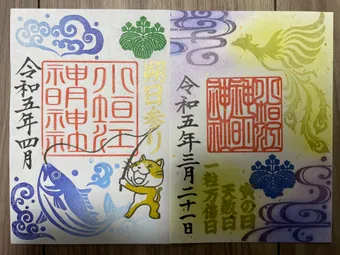 令和五年四月
小垣江
神明神社
令和五年三月二十一日
小垣江
神明
神社
寅の日
天赦日
一粒万倍日